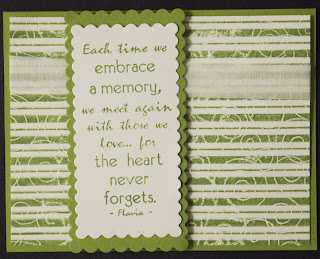 Each time we
embrace
a memory,
we meet again
with those we
love... for
the heart
never
forgets.
- Flavia -